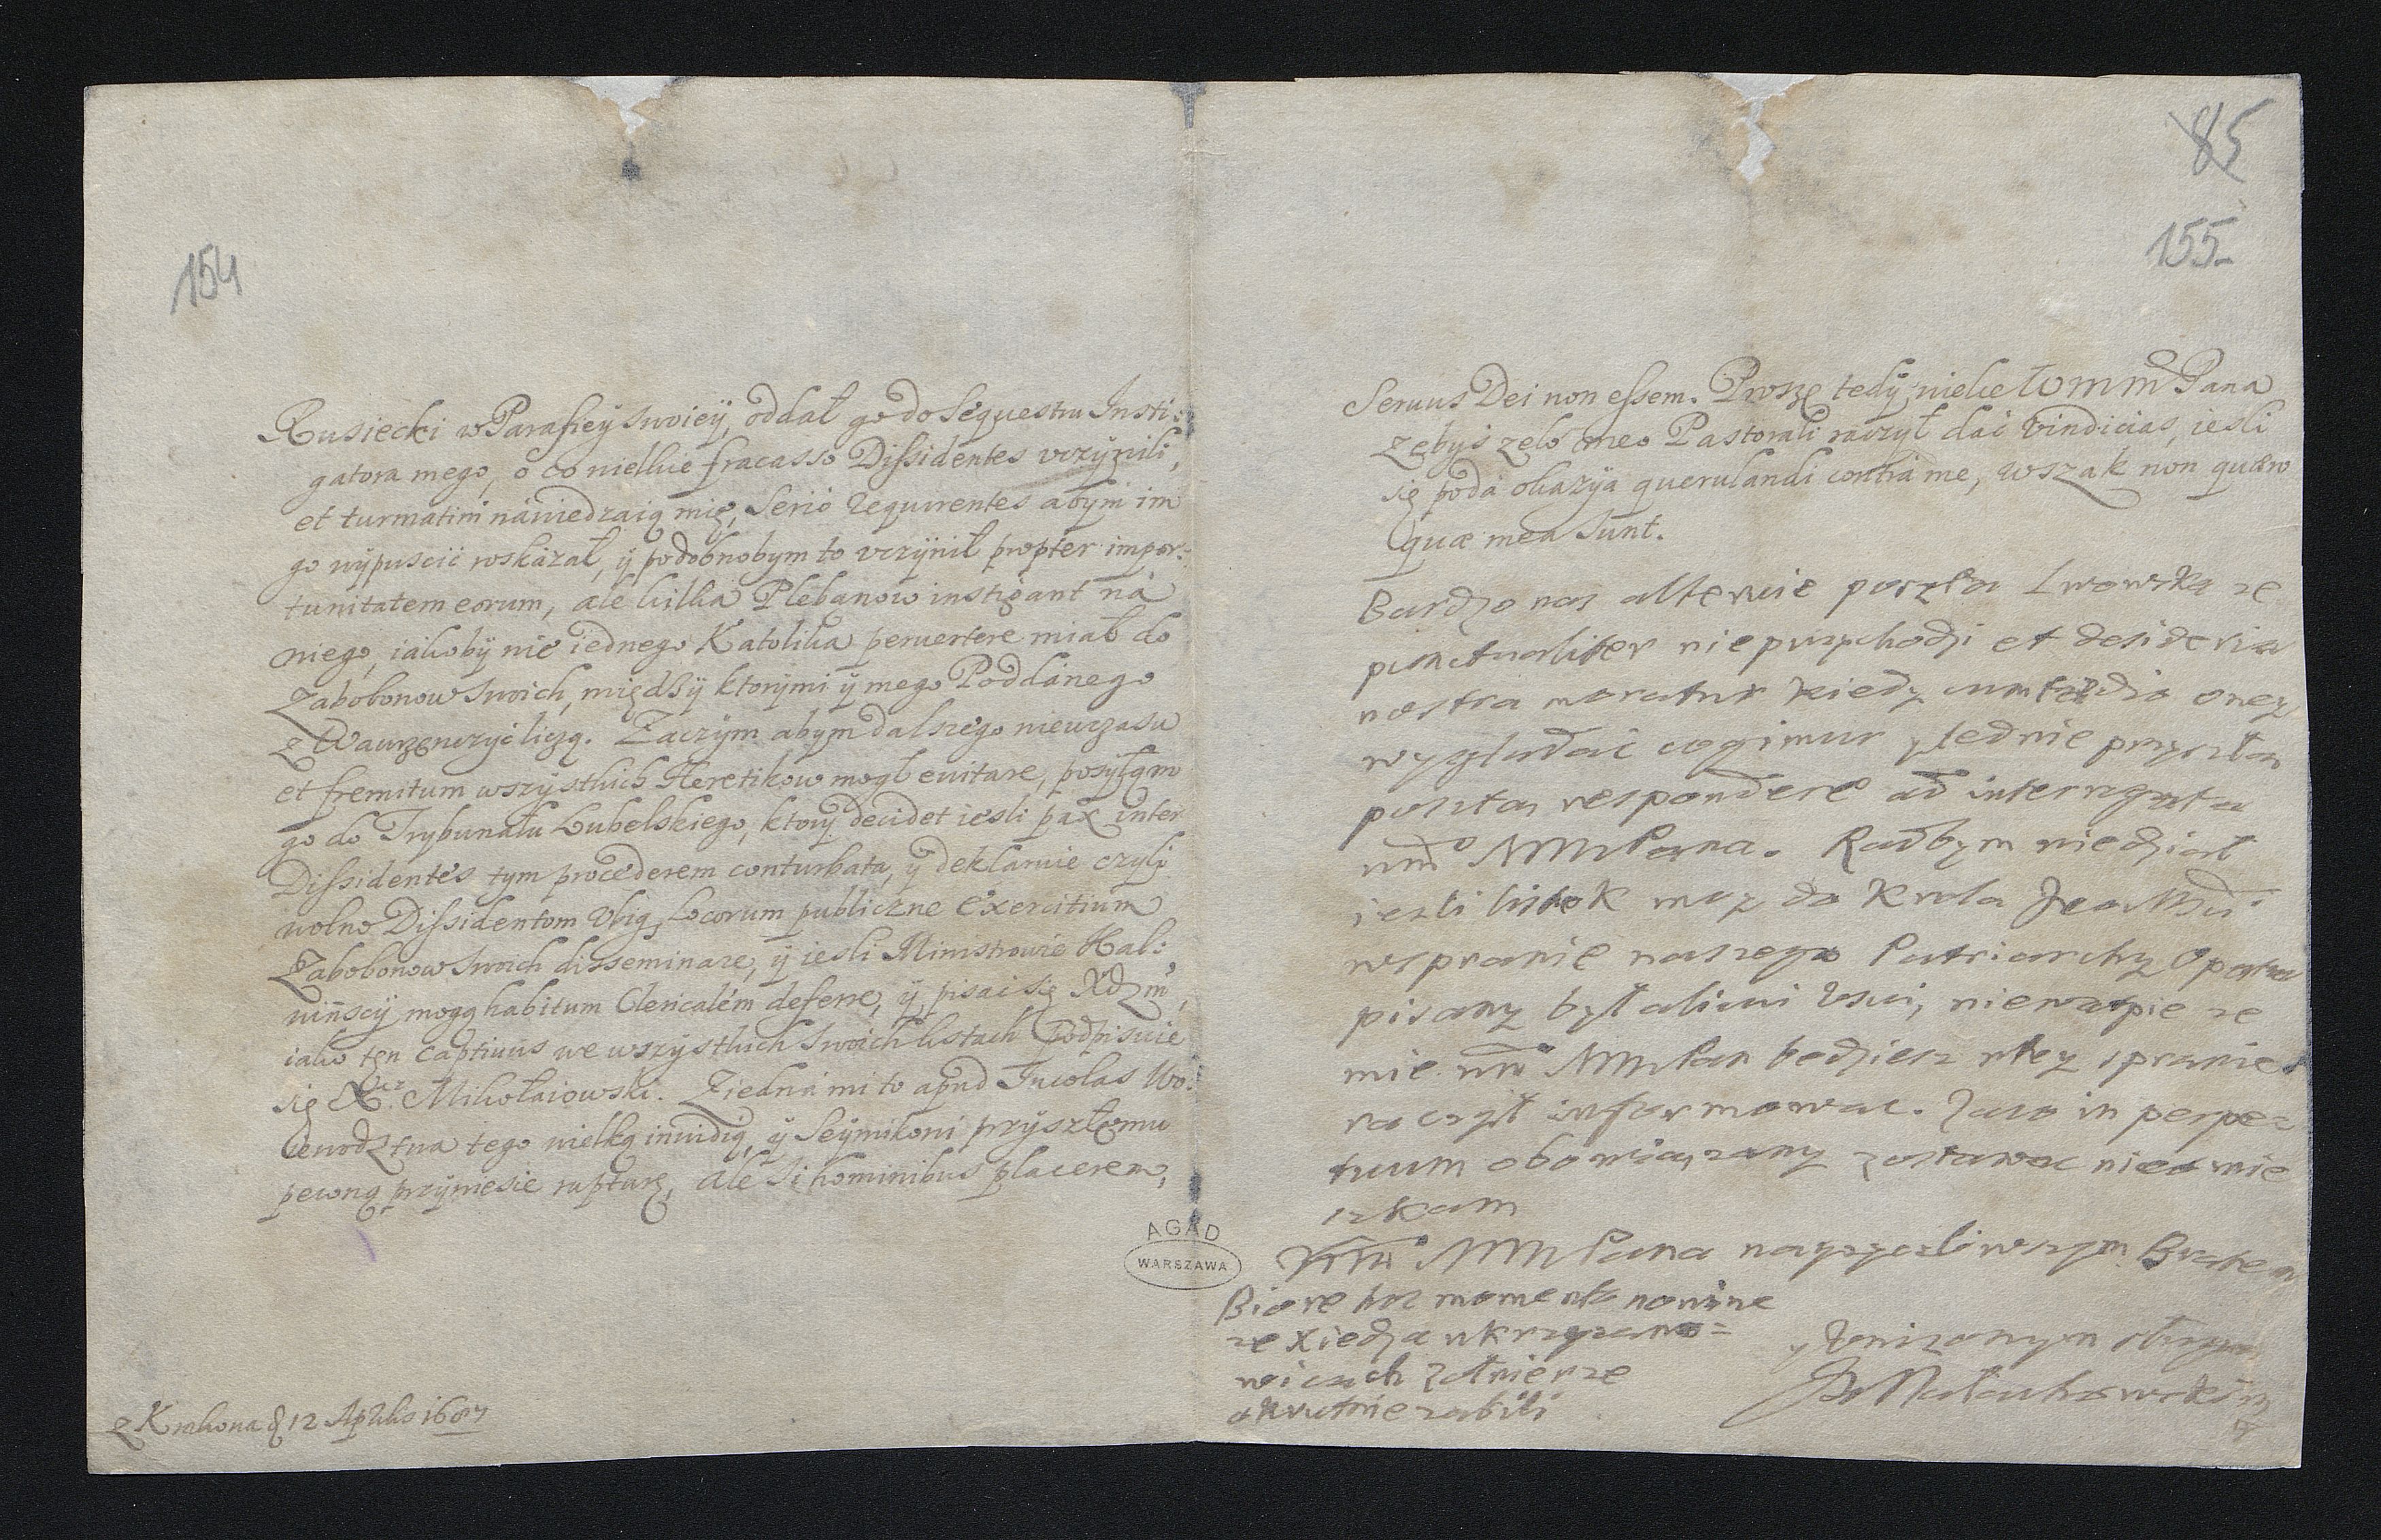 154
Rusiecki w Parafiey swoiey, oddał go do Sequestru Insti:
gatora mego, o co wielkie fracasso Dissidentes vczynili,
et turmatim nawiedzaią mię, serio requirentes abym im
go wypuscić roskazał, y podobnobym to vczynił propter impor:
tunitatem eorum, ale kilka Plebanow instigant na
niego, iakoby nie iednego Katolika peruertere miał do
Zabobonow swoich, między ktorymi y mego Poddanego
z Wawrzenczyc liczą. Zaczym abym dalszego niewczasu
et fremitum wszystkich Heretikow mogł euitare, posyłam
go do Trybunału Lubelskiego, ktory decidet iesli pax inter
Dissidentes tym procederem conturbata, y deklaruie czyli
wolno Dissidentom Vbiq, Locorum publiczne Exercitium
Zabobonow swoich disseminare, y iesli Ministrowie Kal:
winscy mogą habitum Clericalem deferre, y pisać się Xdzm,
iako ten captiuus we wszystkich swoich listach Podpisuie
się X. Mikołaiowski. Ziedna mi to apud Incolas Wo:
iewodztwa tego wielką inuidią, y Seymikowi przyszłemu
pewną przyniesie rupturę, ale si hominibus placerem,
z Krakowa d 12 Aprilis 1687
AGAD
WARSZAWA
85
155
Seruus Dei non essem. Proszę tedy wielce WMM Pana
zebys zelo meo Pastorali raczył dać vindicias, iesli
się poda okazya querulandi contra me, wszak non quæro
quæ mea sunt.
Bardzo nas alteruie poszta Lwowska ze
punctualiter nieprzychodzi et desideria
nostra moratur kiedy cum tædio oney
wyglądać cogimur y ledwie przyszłą
posztą respondere ad interrogata
WM MMPana. Radbym wiedział
iesli listek moy do Krola Jeo Mci
wsprawie naszego Patriarchy Opata
pisany był alicui usui, niewątpie ze
mie WM MMPan bedziesz w tey sprawie
raczył informowac. Zaco in perpe=
tuum obowiązany zostawac nieomie
szkam
WM MMPana nayzyczliwszym Bratem
y Unizonym sługą
J Małachowski
Biore hoc momento nowine
ze Xiedza w
wicach Zołnierze
okrutnie zabili